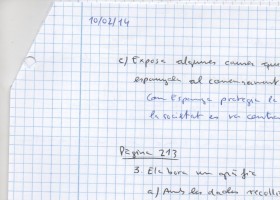 10/02/14
c/ Exposa algunes causes que
espanyola al començament
Com Espanya protegia la
la societat es va contra
Pàgina 213
3. Elabora un gràfic
a/ Amb les dades recolli